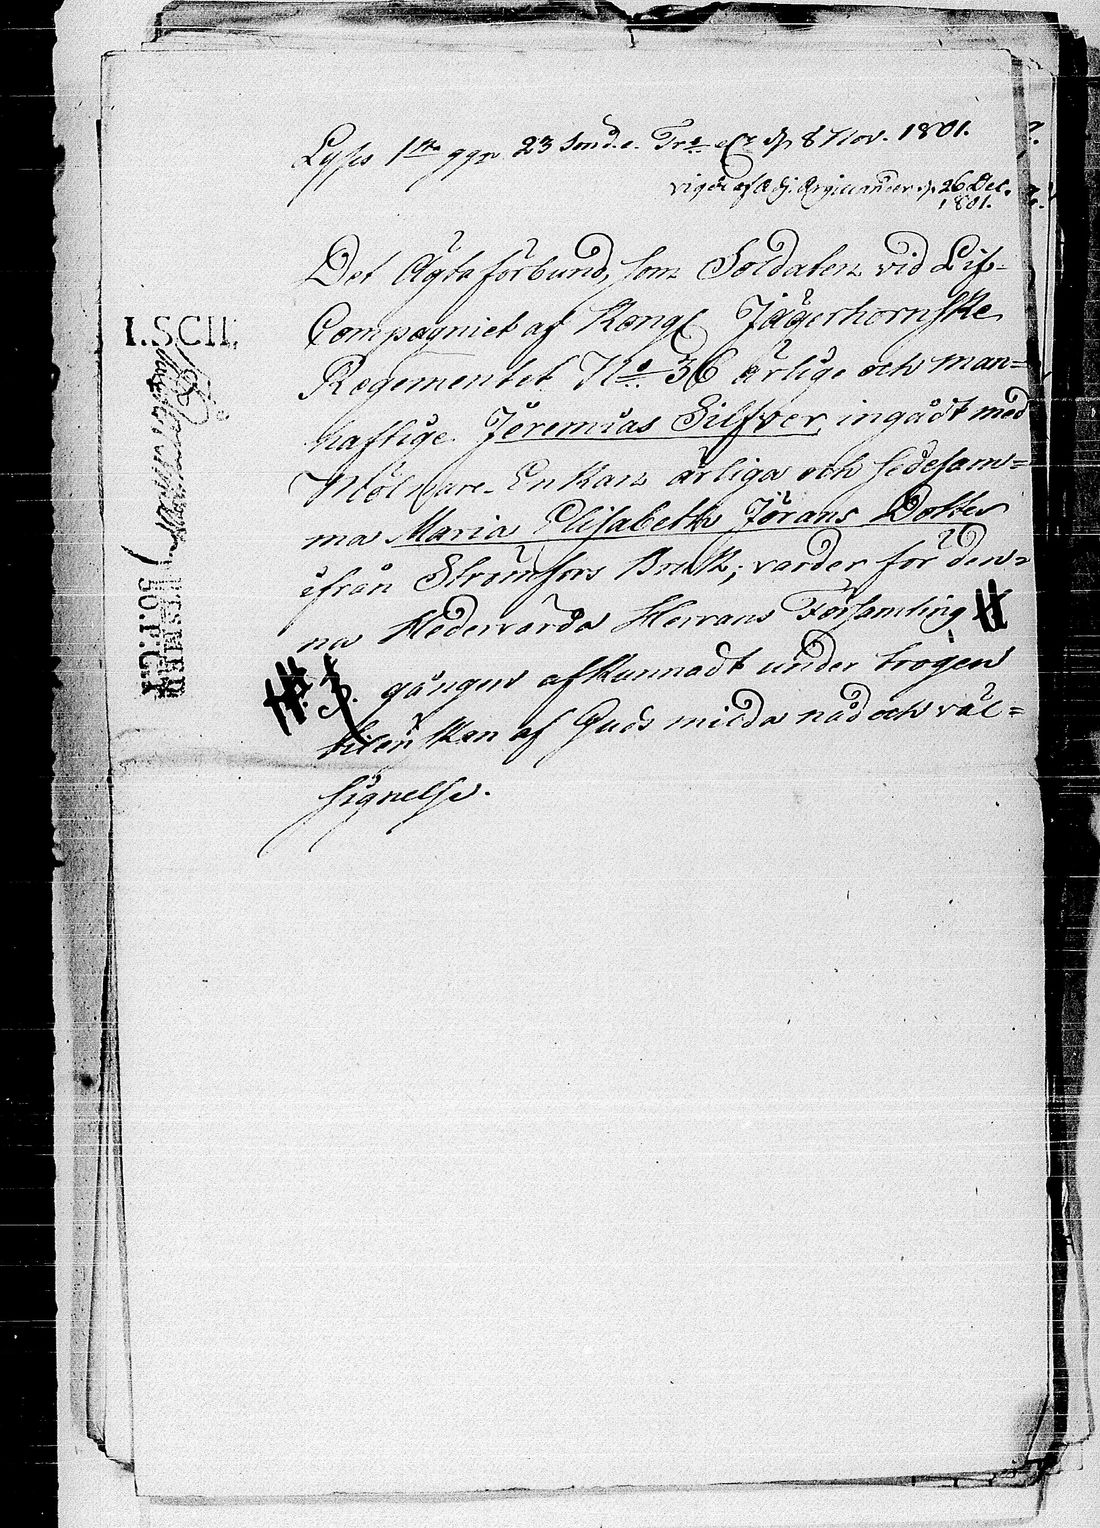 Lyses 1sta ggn 23 Sönd. e. Tref. d. 8 Nov. 1801.
vigde af Adj. d. 26 Dec.
1801.
Det Ägta förbund, som Soldaten vid Lif-
Compagniet af Kongl Jägerhornske
Regementet No 36 ärlige och man-
haftige Jeremias Silfver ingådt med
Mölnare-Enkan ärliga och sedesam-
ma Maria Elisabeth Jörans Dotter
ifrån Strömfors Bruk; varder för den-
na Hedervärda Herrans Församling
gången afkunnadt under trogen
af Guds milda nåd och väl-
signelse.
I.SCII.
50.P.G.